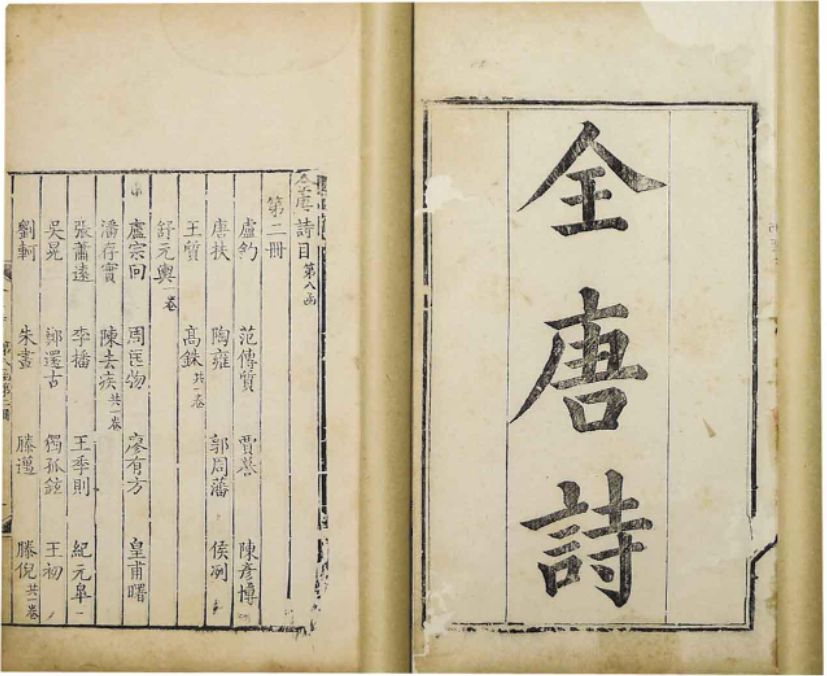 全唐詩
全唐詩目 第八函
第二冊
盧鈞 范傳質 賈謩 陳彥博
唐扶 陶雍 郭周藩 侯冽
王質 高銖 共一卷
舒元輿 一卷
盧宗回 周匡物 廖有方 皇甫曙
潘存實 陳去疾 共一卷
張蕭遠 李播 王季則 紀元皋
吳晃 鄭還古 獨孤鉉 王初
劉軻 朱晝 滕邁 滕倪 共一卷
第八函第二冊